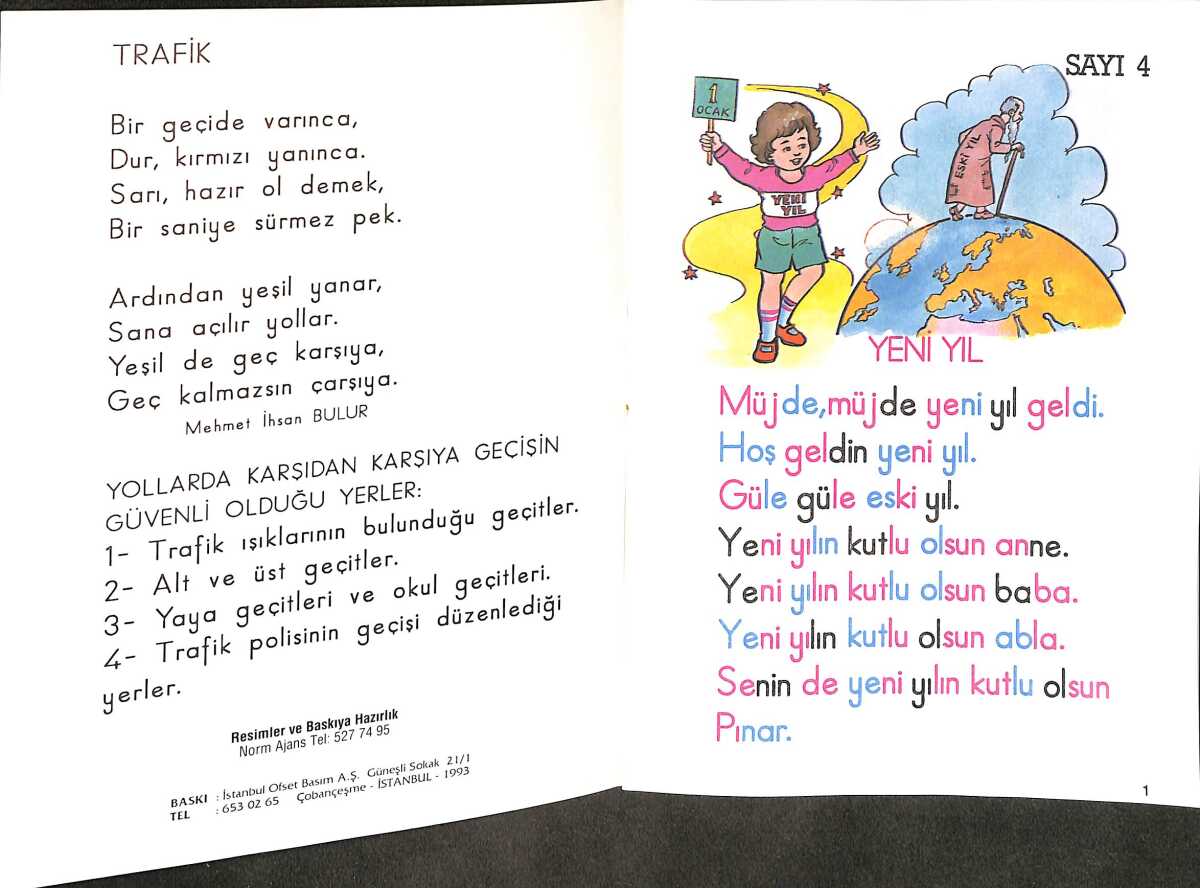 TRAFİK
Bir geçide varınca,
Dur, kırmızı yanınca.
Sarı, hazır ol demek,
Bir saniye sürmez pek.
Ardından yeşil yanar,
Sana açılır yollar.
Yeşil de geç karşıya,
Geç kalmazsın çarşıya.
Mehmet İhsan BULUR
YOLLARDA KARŞIDAN KARŞIYA GEÇİŞİN
GÜVENLİ OLDUĞU YERLER:
1- Trafik ışıklarının bulunduğu geçitler.
2- Alt ve üst geçitler.
3- Yaya geçitleri ve okul geçitleri.
4- Trafik polisinin geçişi düzenlediği
yerler.
Resimler ve Baskıya Hazırlık
Norm Ajans Tel: 527 74 95
BASKI : İstanbul Ofset Basım A.Ş. Güneşli Sokak 21/1
TEL : 653 02 65 Çobançeşme - İSTANBUL - 1993
SAYI 4
1
OCAK
YENİ
YIL
ESKİ YIL
YENİ YIL
Müjde,müjde yeni yıl geldi.
Hoş geldin yeni yıl.
Güle güle eski yıl.
Yeni yılın kutlu olsun anne.
Yeni yılın kutlu olsun baba.
Yeni yılın kutlu olsun abla.
Senin de yeni yılın kutlu olsun
Pınar.
1